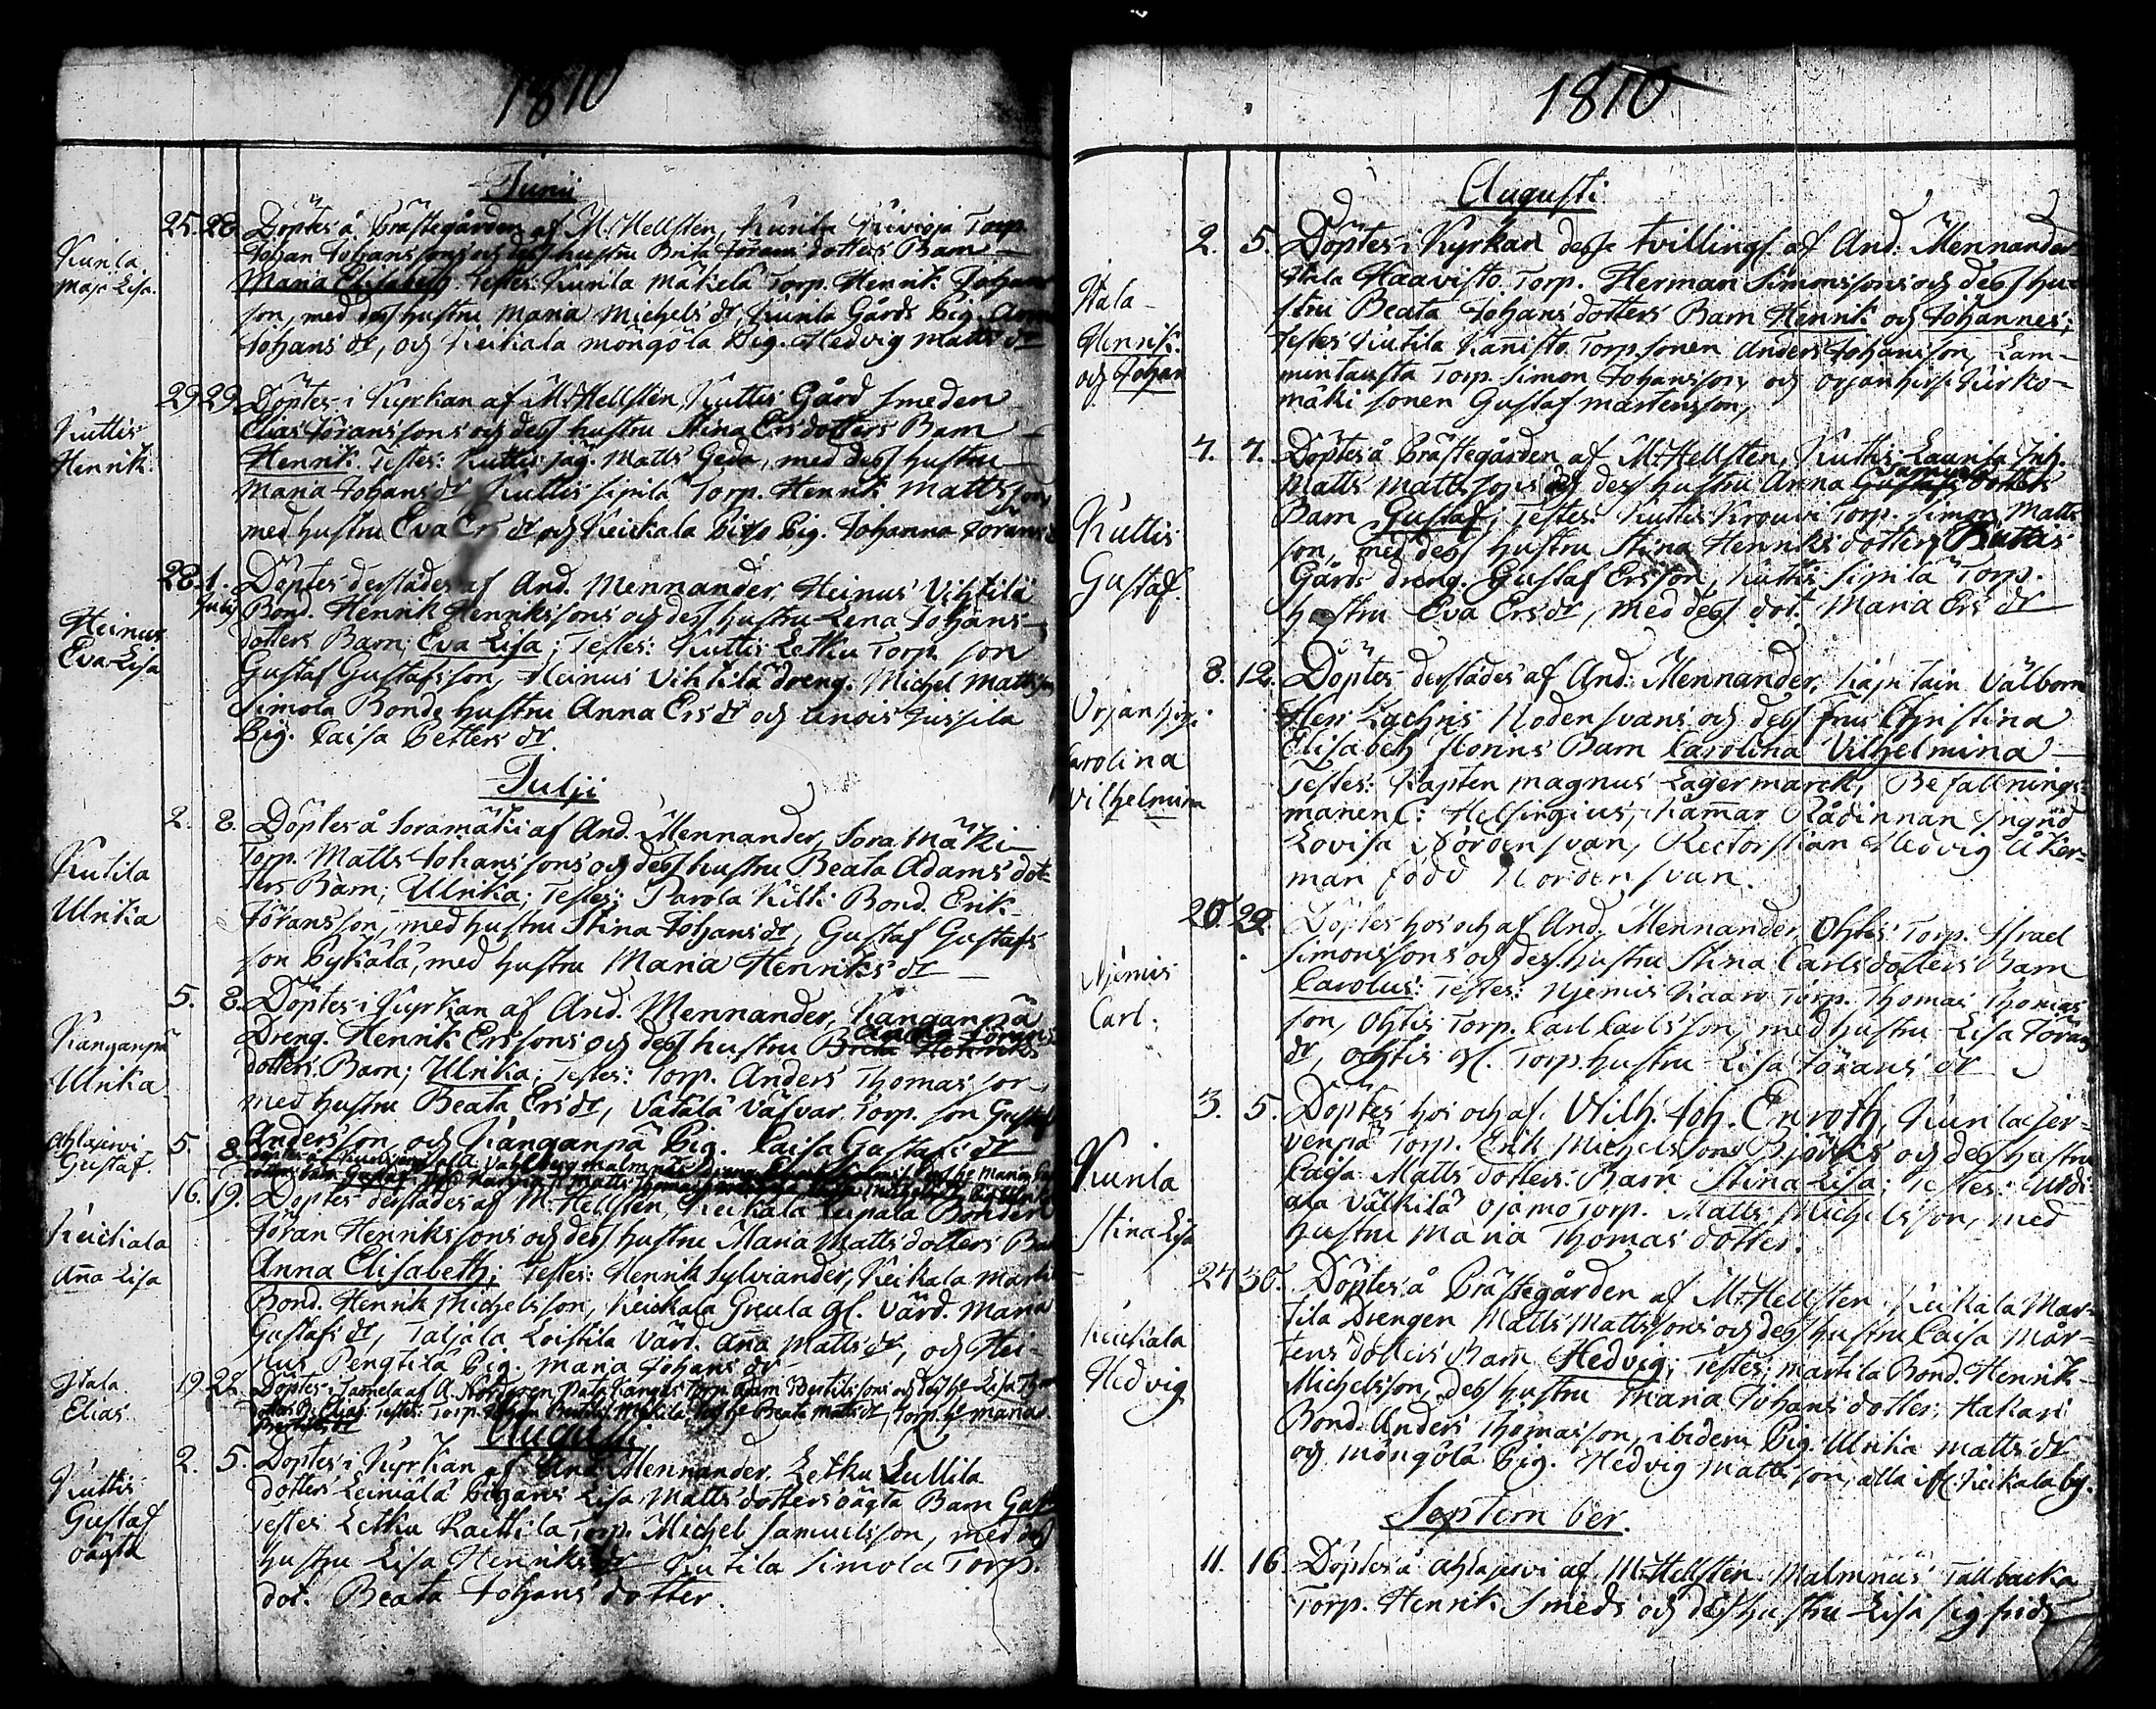 1810
Junii
25. 28. Döptes å Prästegården af M. Hellsten, Kunila Kivioja Torp.
Kunila
Maja Lisa.
Johan Johanssons och dess hustru Brita Jörans dotters Barn
Maria Elisabeth. Testes: Kunila Mäkelä Torp. Henrik Johans
son, med dess hustru Maria Michels dr, Kunila Gårds Pig. Anna
Johans dr, och Keickala Möngölä Pig. Hedvig Matts dr
29 29 Döptes i Kyrkan af M. Hellsten, Kuttis Gård Smeden
Kuttis
Henrik.
Elias Göranssons och dess hustru Stina Ersdotters Barn
Henrik. Testes: Kuttis Jäg. Matts Geda, med dess hustru
Maria Johans dr Kuttis Sipilä Torp. Henrik Matts son
med hustru Eva Ers dr, och Keickala Pig. Johanna Jörans
28. 1. Julij Döptes derstädes af And. Mennander, Heinus Vihtilä
Heinus
Eva Lisa
Bond. Henrik Henrikssons och dess hustru Lena Johans
dotters Barn; Eva Lisa; Testes: Kuttis Letku Torp. son
Gustaf Gustafsson, Heinus Vihtilä dreng. Michel Mattsson
Simola Bonde hustru Anna Ers dr och Anois Jussila
Pig. Caisa Petters dr.
Julii
2. 8. Döptes å Soramäki af And. Mennander, Sora Mäki
Kutila
Ulrika
Torp. Matts Johanssons och dess hustru Beata Adams dot-
ters Barn; Ulrika; Testes: Parola Kilki Bond. Erik
Jöransson, med hustru Stina Johans dr, Gustaf Gustafs
son Pykälä, med hustru Maria Henriks dr
5. 8. Döptes i Kyrkan af And. Mennander, Kanganpä
Kanganpä
Ulrika
Dreng. Henrik Erssons och dess hustru Brita Henriks
dotters Barn; Ulrika; Testes: Torp. Anders Thomasson
med hustru Beata Ers dr, Satala Väfvar Torp. son Gustaf
Andersson och Kanganpä Pig. Caisa Gustafs dr
Ahlajervi
Gustaf.
5. 8.
16. 19. Döptes derstädes af M. Hellsten, Keickala Leipälä Bonden
Keickala
Ana Lisa
Jöran Henrikssons och dess hustru Maria Matts dotters Barn
Anna Elisabeth; Testes: Henrik Sylviander, Keickala Martila
Bond. Henrik Michelsson, Keickala Greula gl. Värd. Maria
Gustafs dr, Taljala Loistila Värd. Ana Matts dr, och Hei-
nus Pengtilä Pig. Maria Johans dr
Itala.
Elias.
19. 22. Döptes i Tamela af A. Norderen
Augusti
2. 5. Döptes i Kyrkan af And. Mennander, Letku Lullila
Kuttis
Gustaf
oägta
dotters Leiniälä Pigans Lisa Matts dotters oägta Barn Gustaf
Testes Letku Raittila Torp. Michel Samuelsson, med dess
hustru Lisa Henriks dr Kutila Simola Torp.
dot. Beata Johans dotter.
1810
Augusti
2. 5. Döptes i Kyrkan desse tvillingar af And. Mennander
Itala
Henrik
och Johan
Itala Haavisto Torp. Herman Simonssons och dess hu-
stru Beata Johans dotters Barn Henrik och Johannes;
Testes Kutila Kanisto Torp. sonen Anders Johansson, Lam-
mintausta Torp. Simon Johansson och Orjanhirsi Kirko-
mäki sonen Gustaf Mårtensson,
7. 7. Döptes å Prästegården af M. Hellsten, Kuttis Laurila Inh.
Kuttis
Gustaf.
Matts Mattssons och dess hustru Anna Samuels dotters
Barn Gustaf; Testes: Kuttis Krouvi Torp. Simon Matts
son, med dess hustru Stina Henriks dotter, Kuttis
Gårds dreng. Gustaf Ersson, Kuttis Sipilä Torp.
hustru Eva Ers dr, med dess dot. Maria Ers dr
8. 12. Döptes derstädes af And. Mennander, Kaptain Välborn
Orjanhirsi
Carolina
Vilhelmina
Herr Zachris Nordensvans och dess fru Christina
Elisabeth Florins Barn Carolina Vilhelmina
Testes: Kapten Magnus Lagermarck, Befallnings-
manen C: Helsingius, Kamar Rådinnan Ingrid
Lovisa Nordensvan, Rectorskan Hedvig Åker-
man född Nordensvan.
20. 29. Döptes hos och af And. Mennander, Ohtis Torp. Israel
Njemis
Carl.
Simonssons och dess hustru Stina Carlsdotters Barn
Carolus: Testes: Njemis Kaaro Torp. Thomas Thomas
son, Ohtis Torp. Carl Carlsson, med hustru Lisa Jörans
dr, Ohtis gl. Torp. hustru Lisa Jörans dr
3. 5. Döptes hos och af Vilh. Joh. Enroth, Kunila Jer-
Kunila
Stina Lisa
venpä Torp. Erik Michelssons Björks och dess hustru
Caisa Matts dotters Barn Stina Lisa; Testes: Urdi
ala Välkilä Ojamo Torp. Matts Michelsson, med
hustru Maria Thomas dotter.
24 30. Döptes å Prästegården af M. Hellsten Keikala Mar-
Keickala
Hedvig
tila Drengen Matts Mattssons och dess hustru Caisa Mår-
tens dotters Barn Hedvig; Testes: Martila Bond. Henrik
Michelsson, dess hustru Maria Johans dotter, Hakari
Bond. Anders Thomasson, ibidem Pig. Ulrika Matts dr
och Möngölä Pig. Hedvig Mattsson, alla if. Keikala by.
September.
11. 16. Döptes å Ahlajervi af M. Hellsten Malmnäs Tallbacka
Torp. Henrik Smeds och dess hustru Lisa Sigfrids